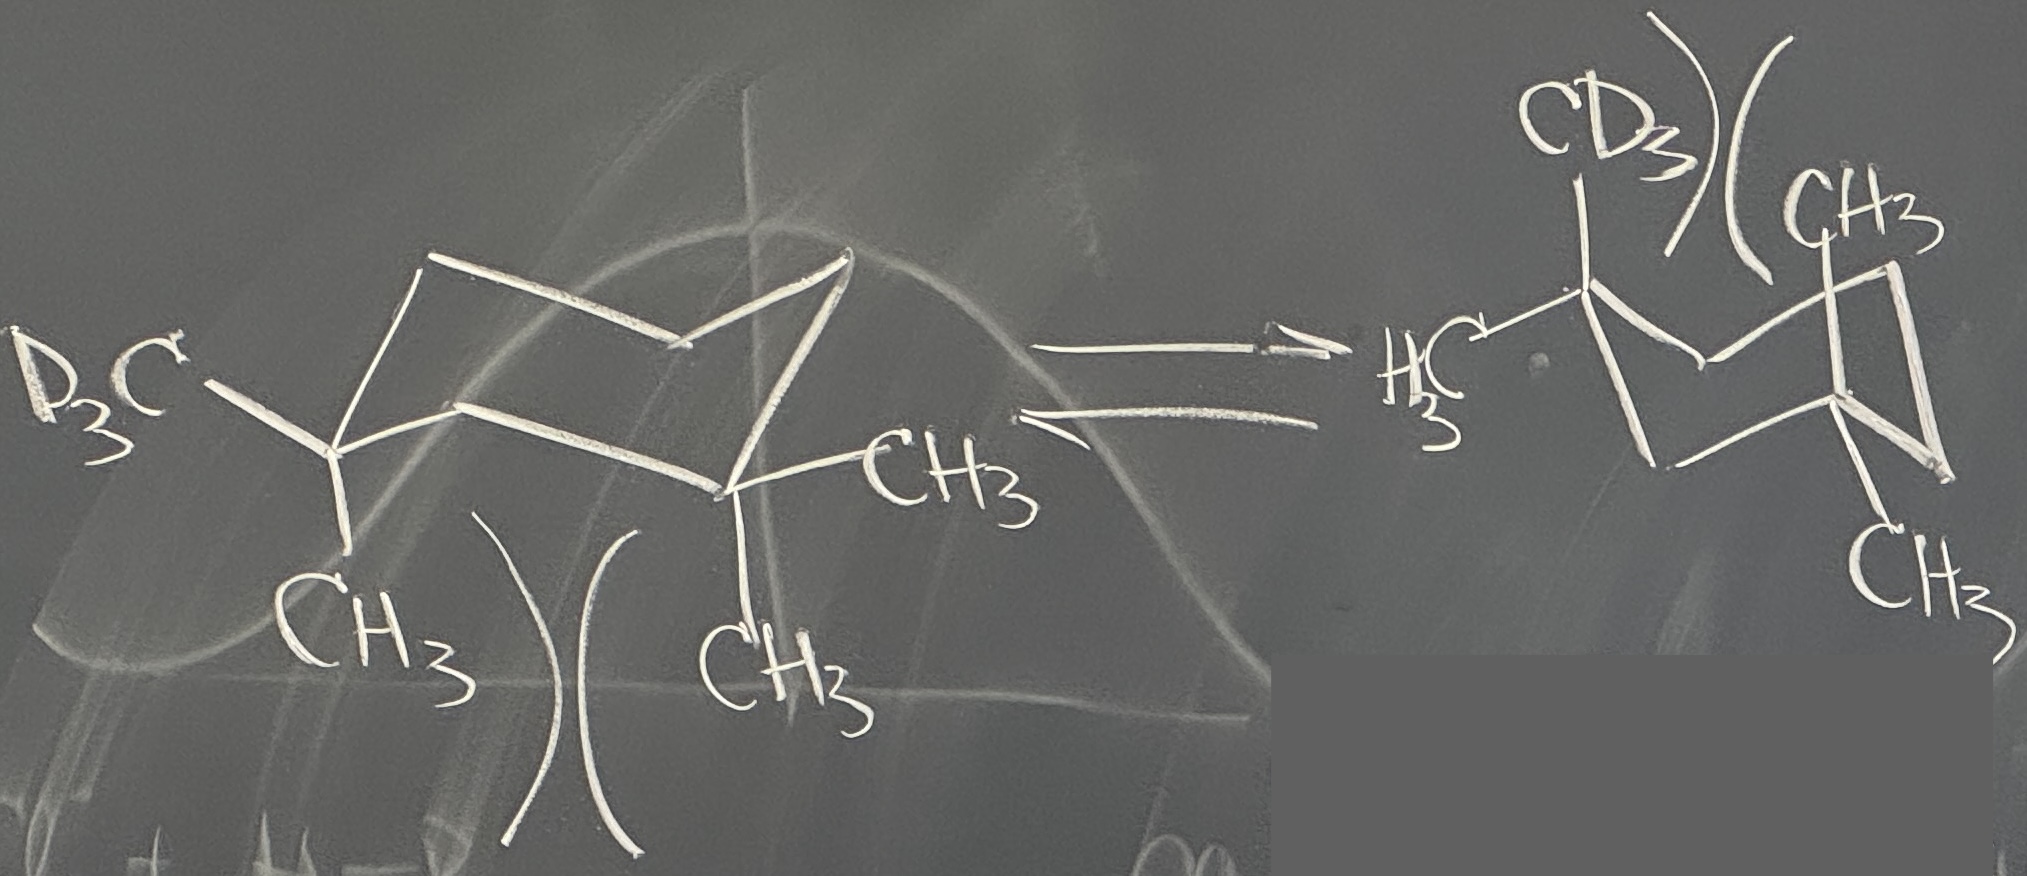 D₃C
CH₃
CH₃
CH₃
CD₃
CH₃
H₃C
CH₃